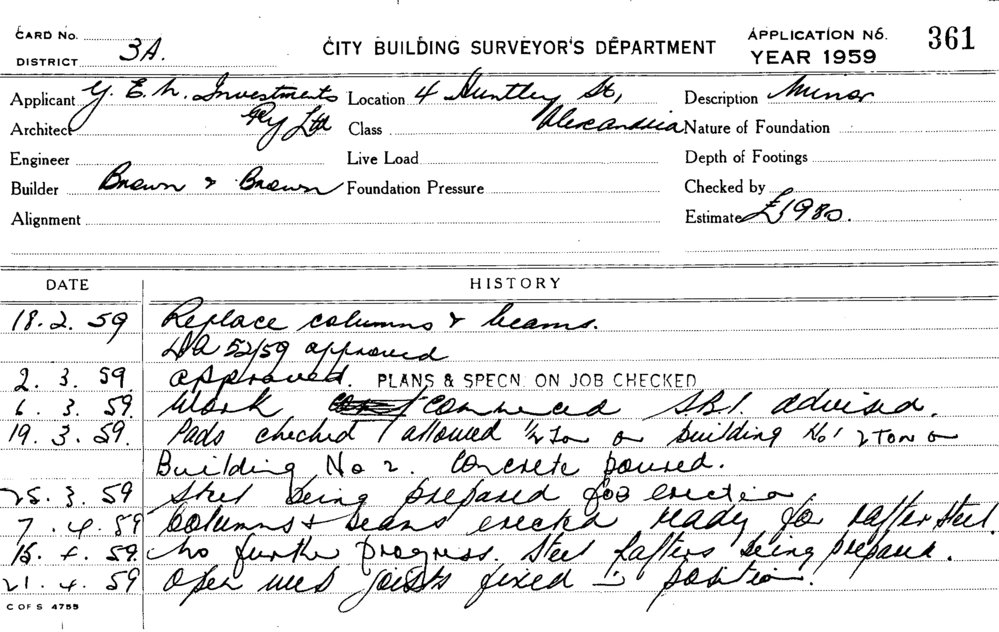 CARD No.
DISTRICT 3A.
CITY BUILDING SURVEYOR'S DEPARTMENT
APPLICATION No. 361
YEAR 1959
Applicant Y. E. N. Investments Location 4 Huntley St, Description Minor
Architect Pty Ltd Class Alexandria Nature of Foundation
Engineer Live Load Depth of Footings
Builder Brown & Brown Foundation Pressure Checked by
Alignment Estimate £1980.
DATE HISTORY
18.2.59 Replace columns & beams.
DA 52/59 approved
2.3.59. approved. PLANS & SPECN ON JOB CHECKED
6.3.59. Work commenced advised.
19.3.59. Pads checked allowed 1/2 Ton on building No 1 2 Ton on
Building No 2. Concrete poured.
25.3.59 Steel being prepared for erection.
7.4.59 Columns & beams erected ready for rafter steel.
.4.59. No further progress. Steel rafters being prepared.
21.4.59 Open web joists fixed in position.
C OF S 4755